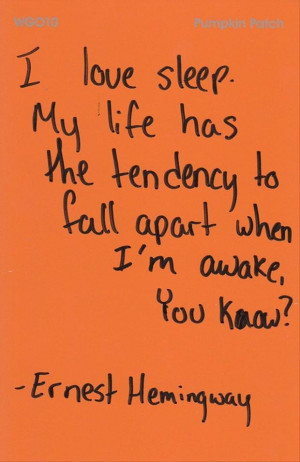 WG018 Pumpkin Patch
I love sleep.
My life has
the tendency to
fall apart when
I'm awake,
You Know?
-Ernest Hemingway